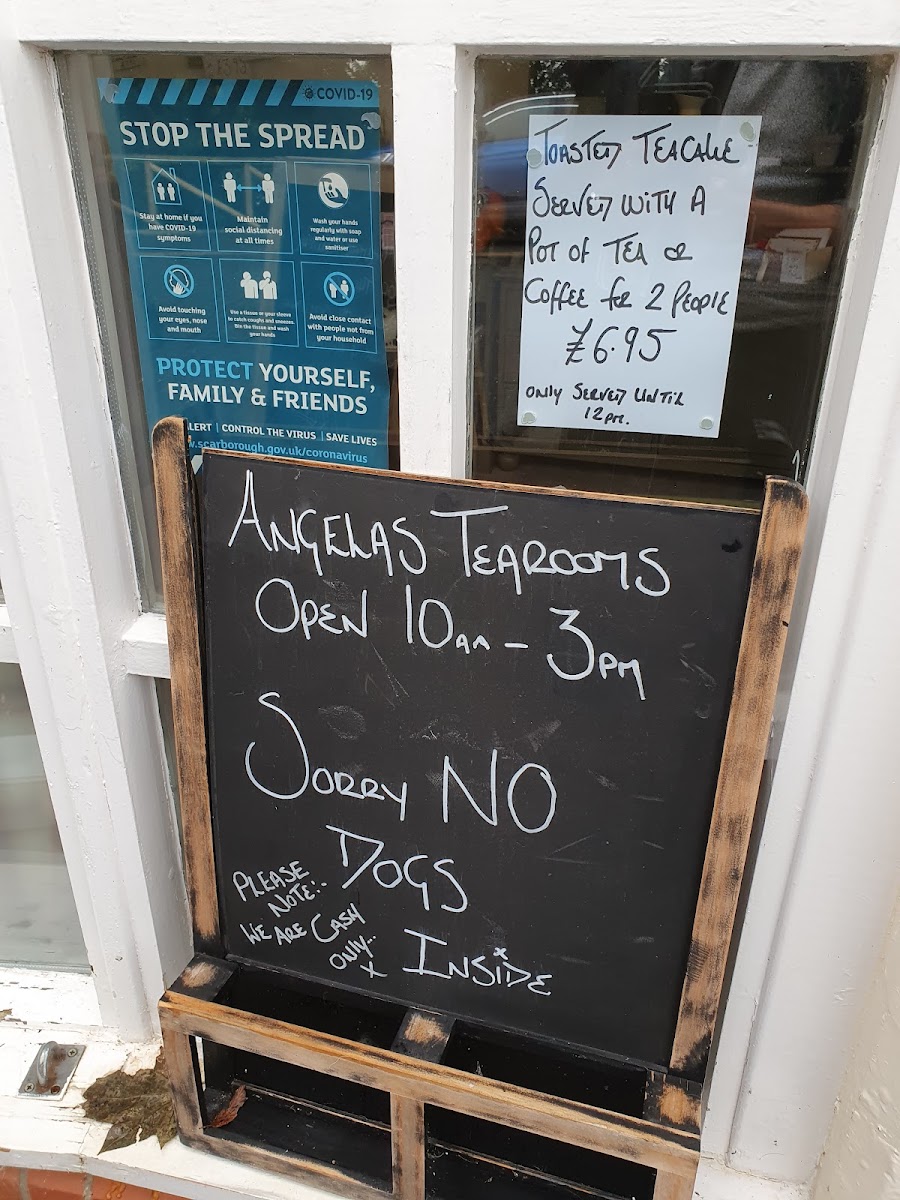 COVID-19
STOP THE SPREAD
Stay at home if you
have COVID-19
symptoms
Maintain
social distancing
at all times
Wash your hands
regularly with soap
and water or use
sanitiser
Avoid touching
your eyes, nose
and mouth
Use a tissue or your sleeve
to catch coughs and sneezes.
Bin the tissue and wash
your hands
Avoid close contact
with people not from
your household
PROTECT YOURSELF,
FAMILY & FRIENDS
ALERT | CONTROL THE VIRUS | SAVE LIVES
.scarborough.gov.uk/coronavirus
TOASTED TEACAKE
SERVED WITH A
POT OF TEA OR
COFFEE for 2 PEOPLE
£6.95
ONLY SERVED UNTIL
12pm.
ANGELAS TEAROOMS
OPEN 10am - 3pm
SORRY NO
DOGS
INSIDE
PLEASE
NOTE:-
WE ARE CASH
ONLY..
x